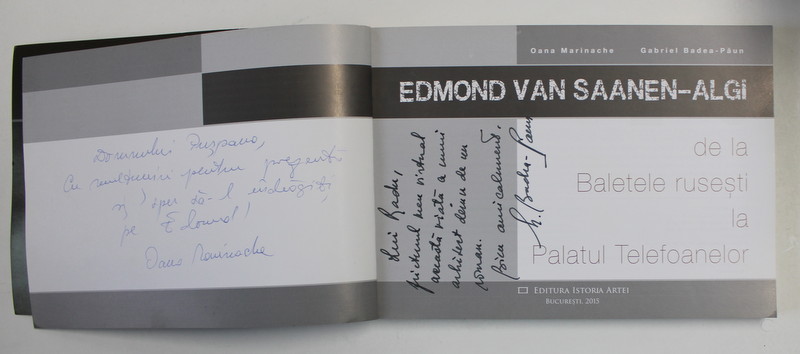 Domnului
Cu mulțumiri pentru
și sper să-l îndrăgiți
pe Edmond!
Oana Marinache
Oana Marinache Gabriel Badea-Păun
EDMOND VAN SAANEN-ALGI
de la
Baletele rusești
la
Palatul Telefoanelor
EDITURA ISTORIA ARTEI
BUCUREȘTI, 2015
Lui Radu,
prietenul meu virtual
această viață a unui
arhitect demn de un
roman.
amicalmente,
G. Badea-Paun